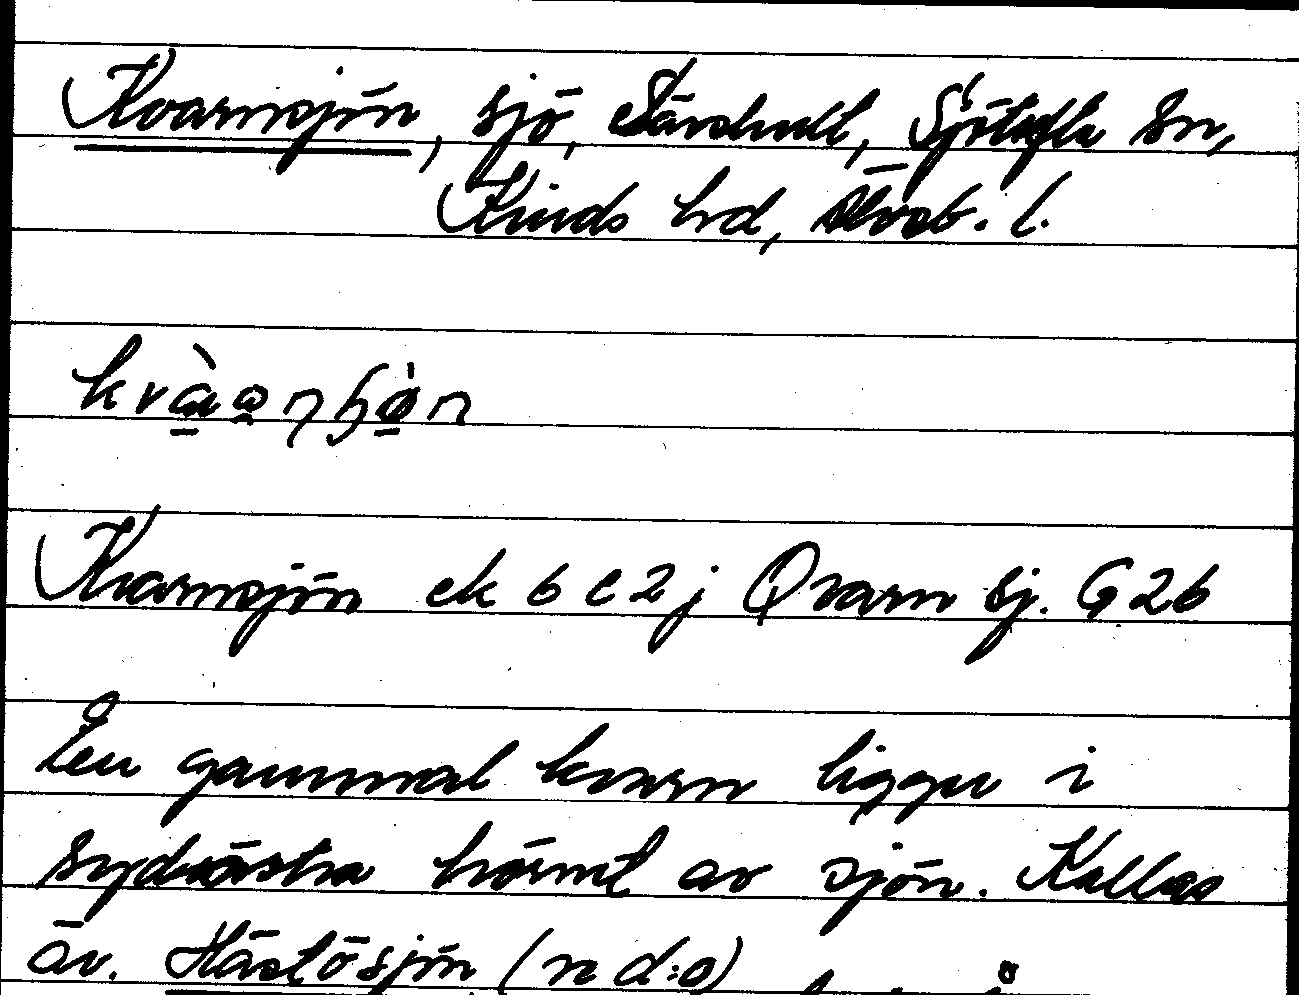 Kvarnsjön, sjö, Särshult, Sjötofta sn,
Kinds hd, Älvsb. l.
Kvarnsjön ek 6 C 2 j Qvarn sj. G 26
En gammal kvarn ligger i
sydvästra hörnet av sjön. Kallas
äv. Hästösjön (se d:o)